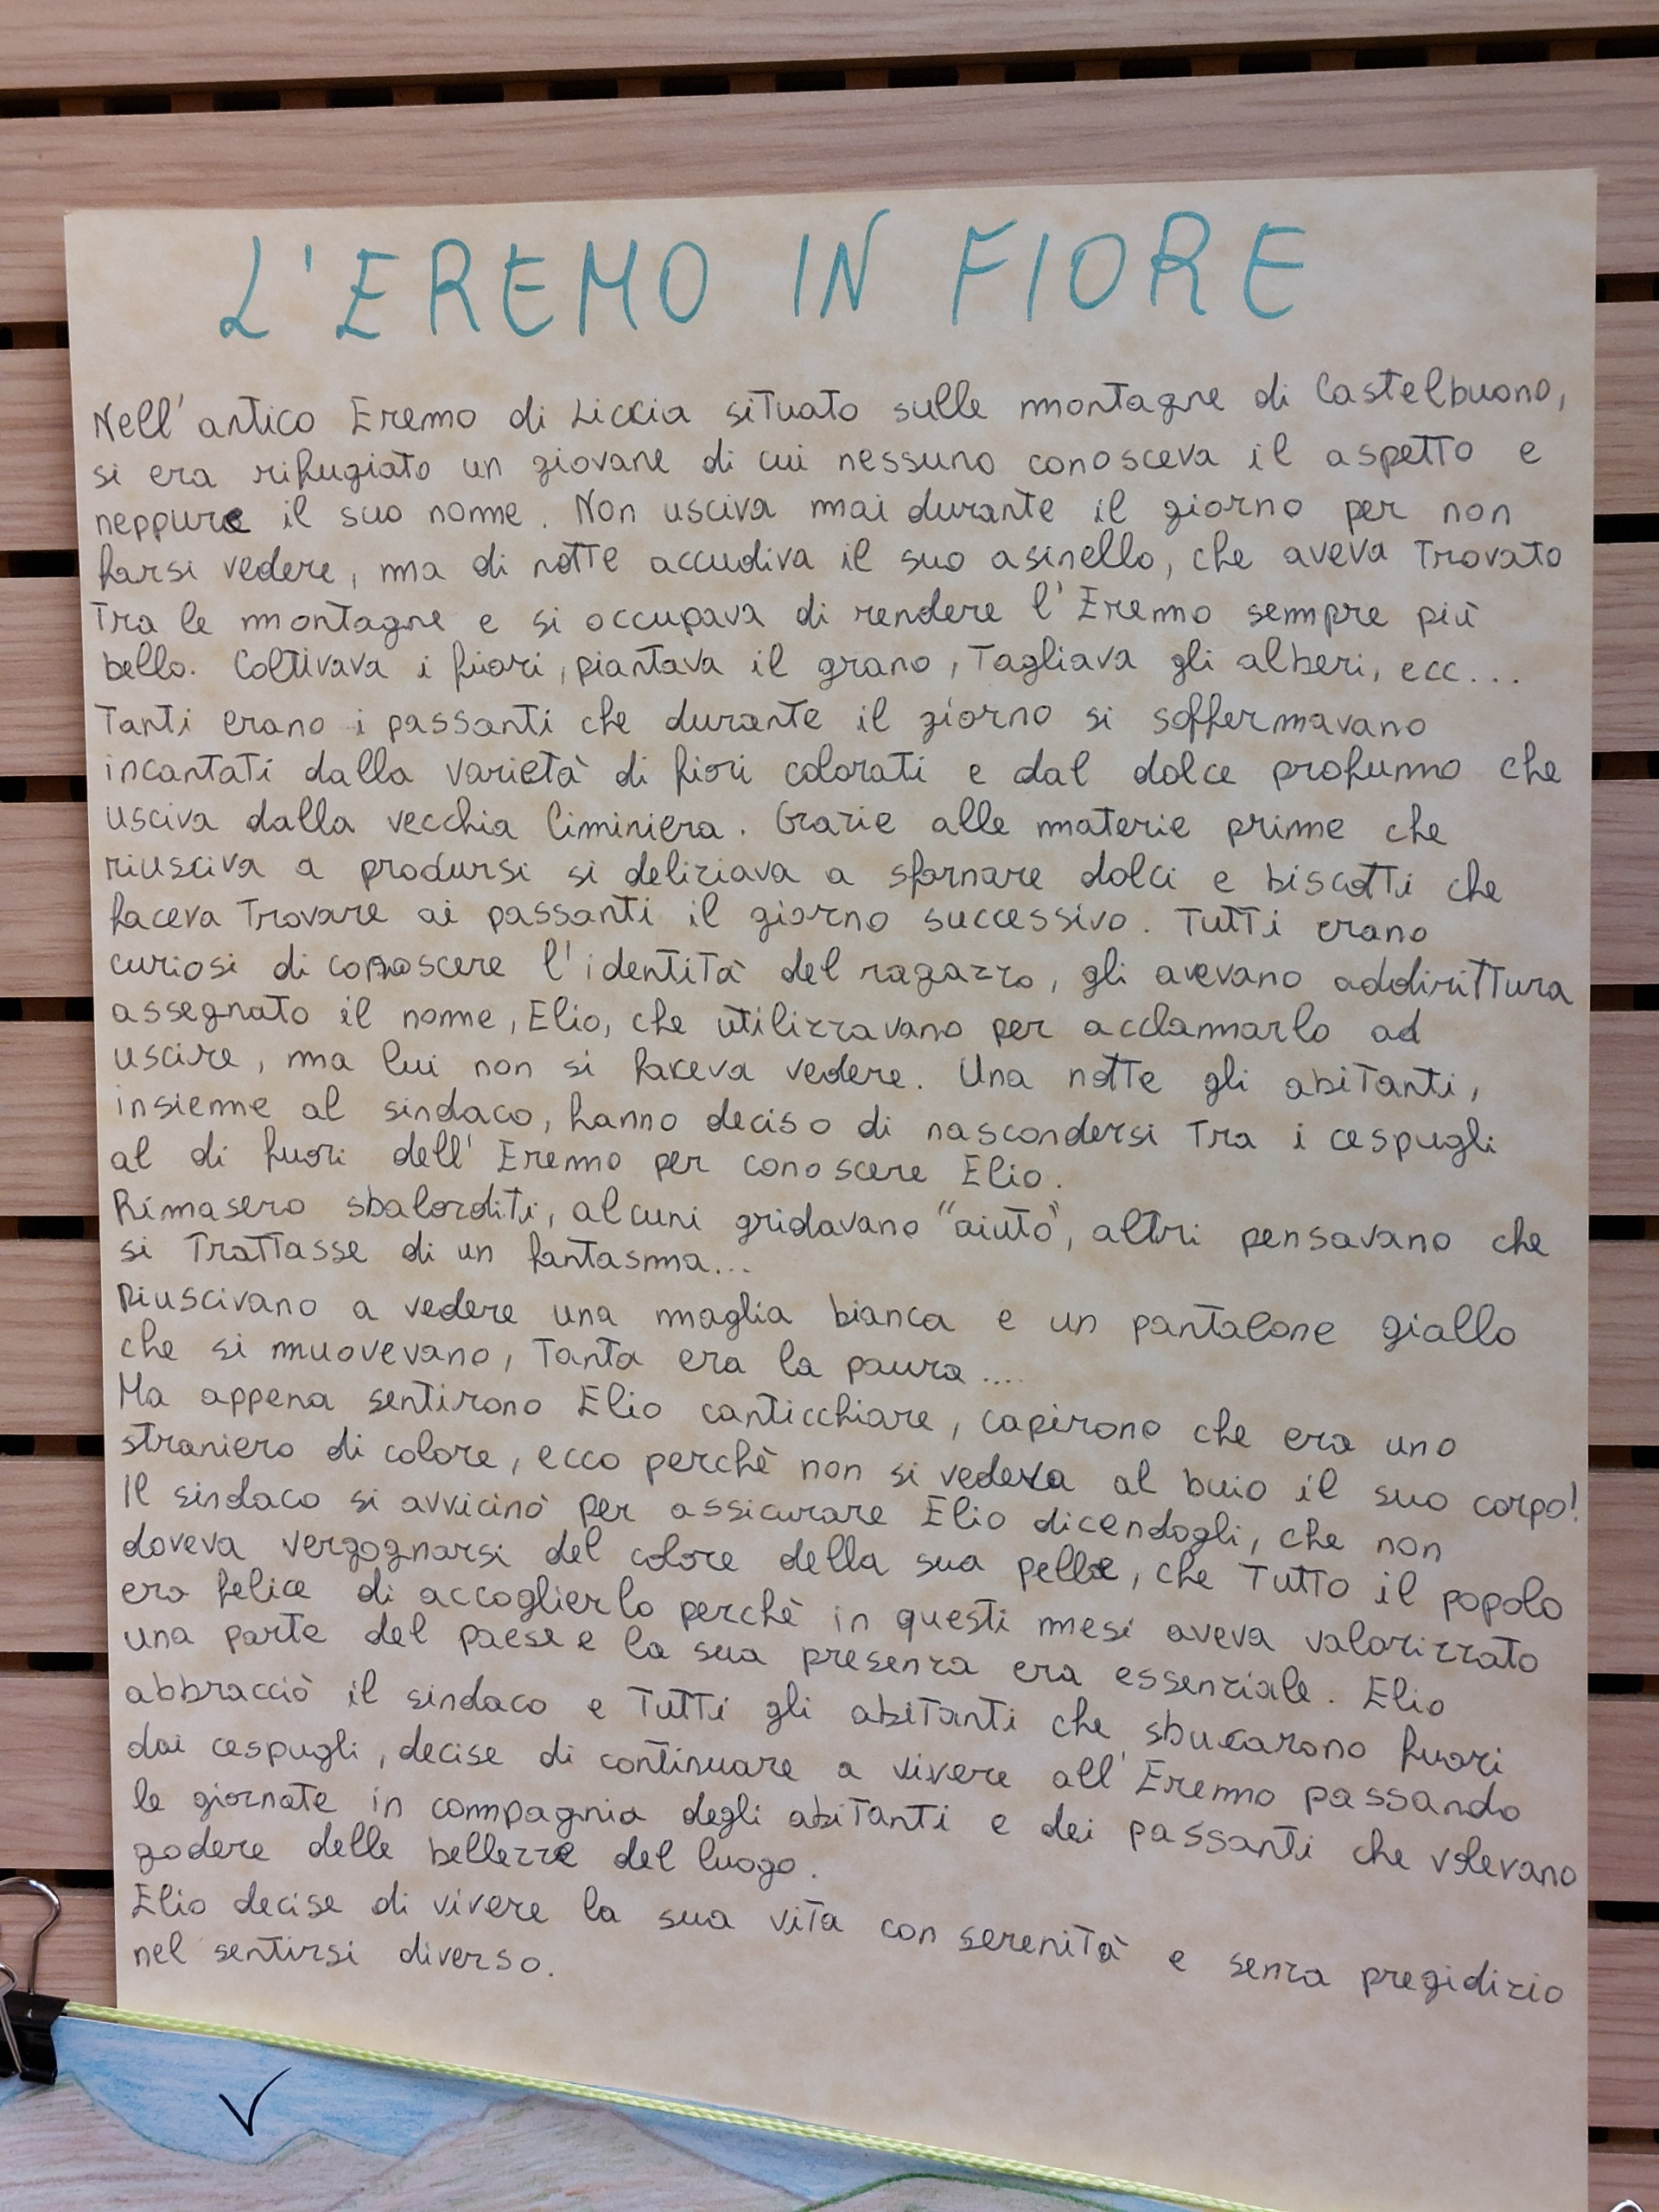 L'EREMO IN FIORE
Nell'antico Eremo di Liccia situato sulle montagne di Castelbuono,
si era rifugiato un giovane di cui nessuno conosceva il aspetto e
neppure il suo nome. Non usciva mai durante il giorno per non
farsi vedere, ma di notte accudiva il suo asinello, che aveva trovato
tra le montagne e si occupava di rendere l'Eremo sempre più
bello. Coltivava i fiori, piantava il grano, tagliava gli alberi, ecc...
Tanti erano i passanti che durante il giorno si soffermavano
incantati dalla varietà di fiori colorati e dal dolce profumo che
usciva dalla vecchia ciminiera. Grazie alle materie prime che
riusciva a prodursi si deliziava a sfornare dolci e biscotti che
faceva trovare ai passanti il giorno successivo. Tutti erano
curiosi di conoscere l'identità del ragazzo, gli avevano addirittura
assegnato il nome, Elio, che utilizzavano per acclamarlo ad
uscire, ma lui non si faceva vedere. Una notte gli abitanti,
insieme al sindaco, hanno deciso di nascondersi tra i cespugli
al di fuori dell'Eremo per conoscere Elio.
Rimasero sbalorditi, alcuni gridavano "aiuto", altri pensavano che
si trattasse di un fantasma...
Riuscivano a vedere una maglia bianca e un pantalone giallo
che si muovevano, tanta era la paura....
Ma appena sentirono Elio canticchiare, capirono che era uno
straniero di colore, ecco perchè non si vedeva al buio il suo corpo!
Il sindaco si avvicinò per assicurare Elio dicendogli, che non
doveva vergognarsi del colore della sua pelle, che tutto il popolo
era felice di accoglierlo perchè in questi mesi aveva valorizzato
una parte del paese e la sua presenza era essenziale. Elio
abbracciò il sindaco e tutti gli abitanti che sbucarono fuori
dai cespugli, decise di continuare a vivere all'Eremo passando
le giornate in compagnia degli abitanti e dei passanti che volevano
godere delle bellezze del luogo.
Elio decise di vivere la sua vita con serenità e senza pregidizio
nel sentirsi diverso.